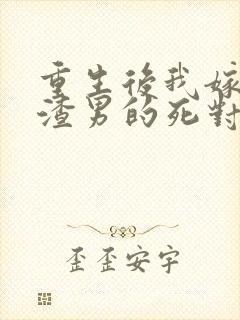 重生後我嫁
渣男的死對
歪歪安宇